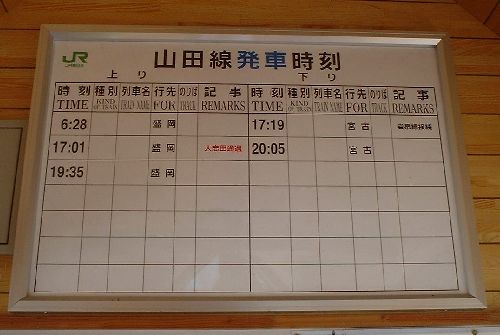 JR
山田線発車時刻
上り 下り
時刻 種別 列車名 行先 のりば 記事 時刻 種別 列車名 行先 のりば 記事
TIME KIND OF TRAIN TRAIN NAME FOR TRACK REMARKS TIME KIND OF TRAIN TRAIN NAME FOR TRACK REMARKS
6:28 盛岡 17:19 宮古
17:01 盛岡 20:05 宮古
19:35 盛岡